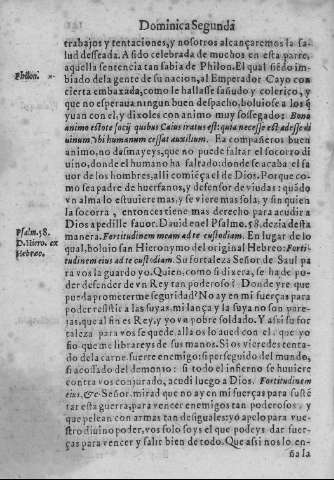 Dominica Segunda
trabajos y tentaciones, y nosotros alcançaremos la sa-
lud desseada. A sido celebrada de muchos en esta parte,
aquella sentencia tan sabia de Philon. El qual siēdo im-
Philon.
biado de la gente de su nacion, al Emperador Cayo con
cierta embaxada, como le hallasse sañudo y colerico, y
que no esperaua ningun buen despacho, boluiose a los q̄
yuan con el, y dixoles con animo muy sossegado: Bono
animo estote socij quibus Caius iratus est: quia necesse est adesse di
uinum vbi humanum cessat auxilium. Ea compañeros buen
animo, no desmayeys, que no puede faltar el socorro di
uino, donde el humano ha faltado: donde se acaba el fa
uor de los hombres, alli comiēça el de Dios. Porque co-
mo sea padre de huerfanos, y defensor de viudas: quādo
vn alma lo estuuiere mas, y se viere mas sola, y sin quien
la socorra, entonces tiene mas derecho para acudir a
Dios a pedille fauor. Dauid en el Psalmo. 58. dezia desta
Psalm. 58.
manera. Fortitudinem meam ad te custodiam. En lugar de lo
D. Hiero. ex
qual, boluio san Hieronymo del original Hebreo: Forti-
Hebreo.
tudinem eius ad te custodiam. Su fortaleza Señor de Saul pa
ra vos la guardo yo. Quien, como si dixera, se ha de po-
der defender de vn Rey tan poderoso? Donde yre que
pueda prometerme seguridad? No ay en mi fuerças para
poder resistir a las suyas, mi lança y la suya no son pare-
jas, que al fin es Rey, y yo vn pobre soldado. Y assi su for
taleza para vos se quede, alla os lo aued con el, que yo
fio que me librareys de sus manos. Si os vieredes tenta-
do de la carne, fuerte enemigo: si perseguido del mundo,
si acossado del demonio: si todo el infierno se huuiere
contra vos conjurado, acudi luego a Dios. Fortitudinem
eius, &c. Señor, mirad que no ay en mi fuerças para suste
tar esta guerra, para vencer enemigos tan poderosos, y
que pelean con armas tan desiguales: yo apelo para vue-
stro diuino poder, vos solo soys el que podeys dar fuer-
ças para vencer y salir bien de todo. Que assi nos lo en-
ña la